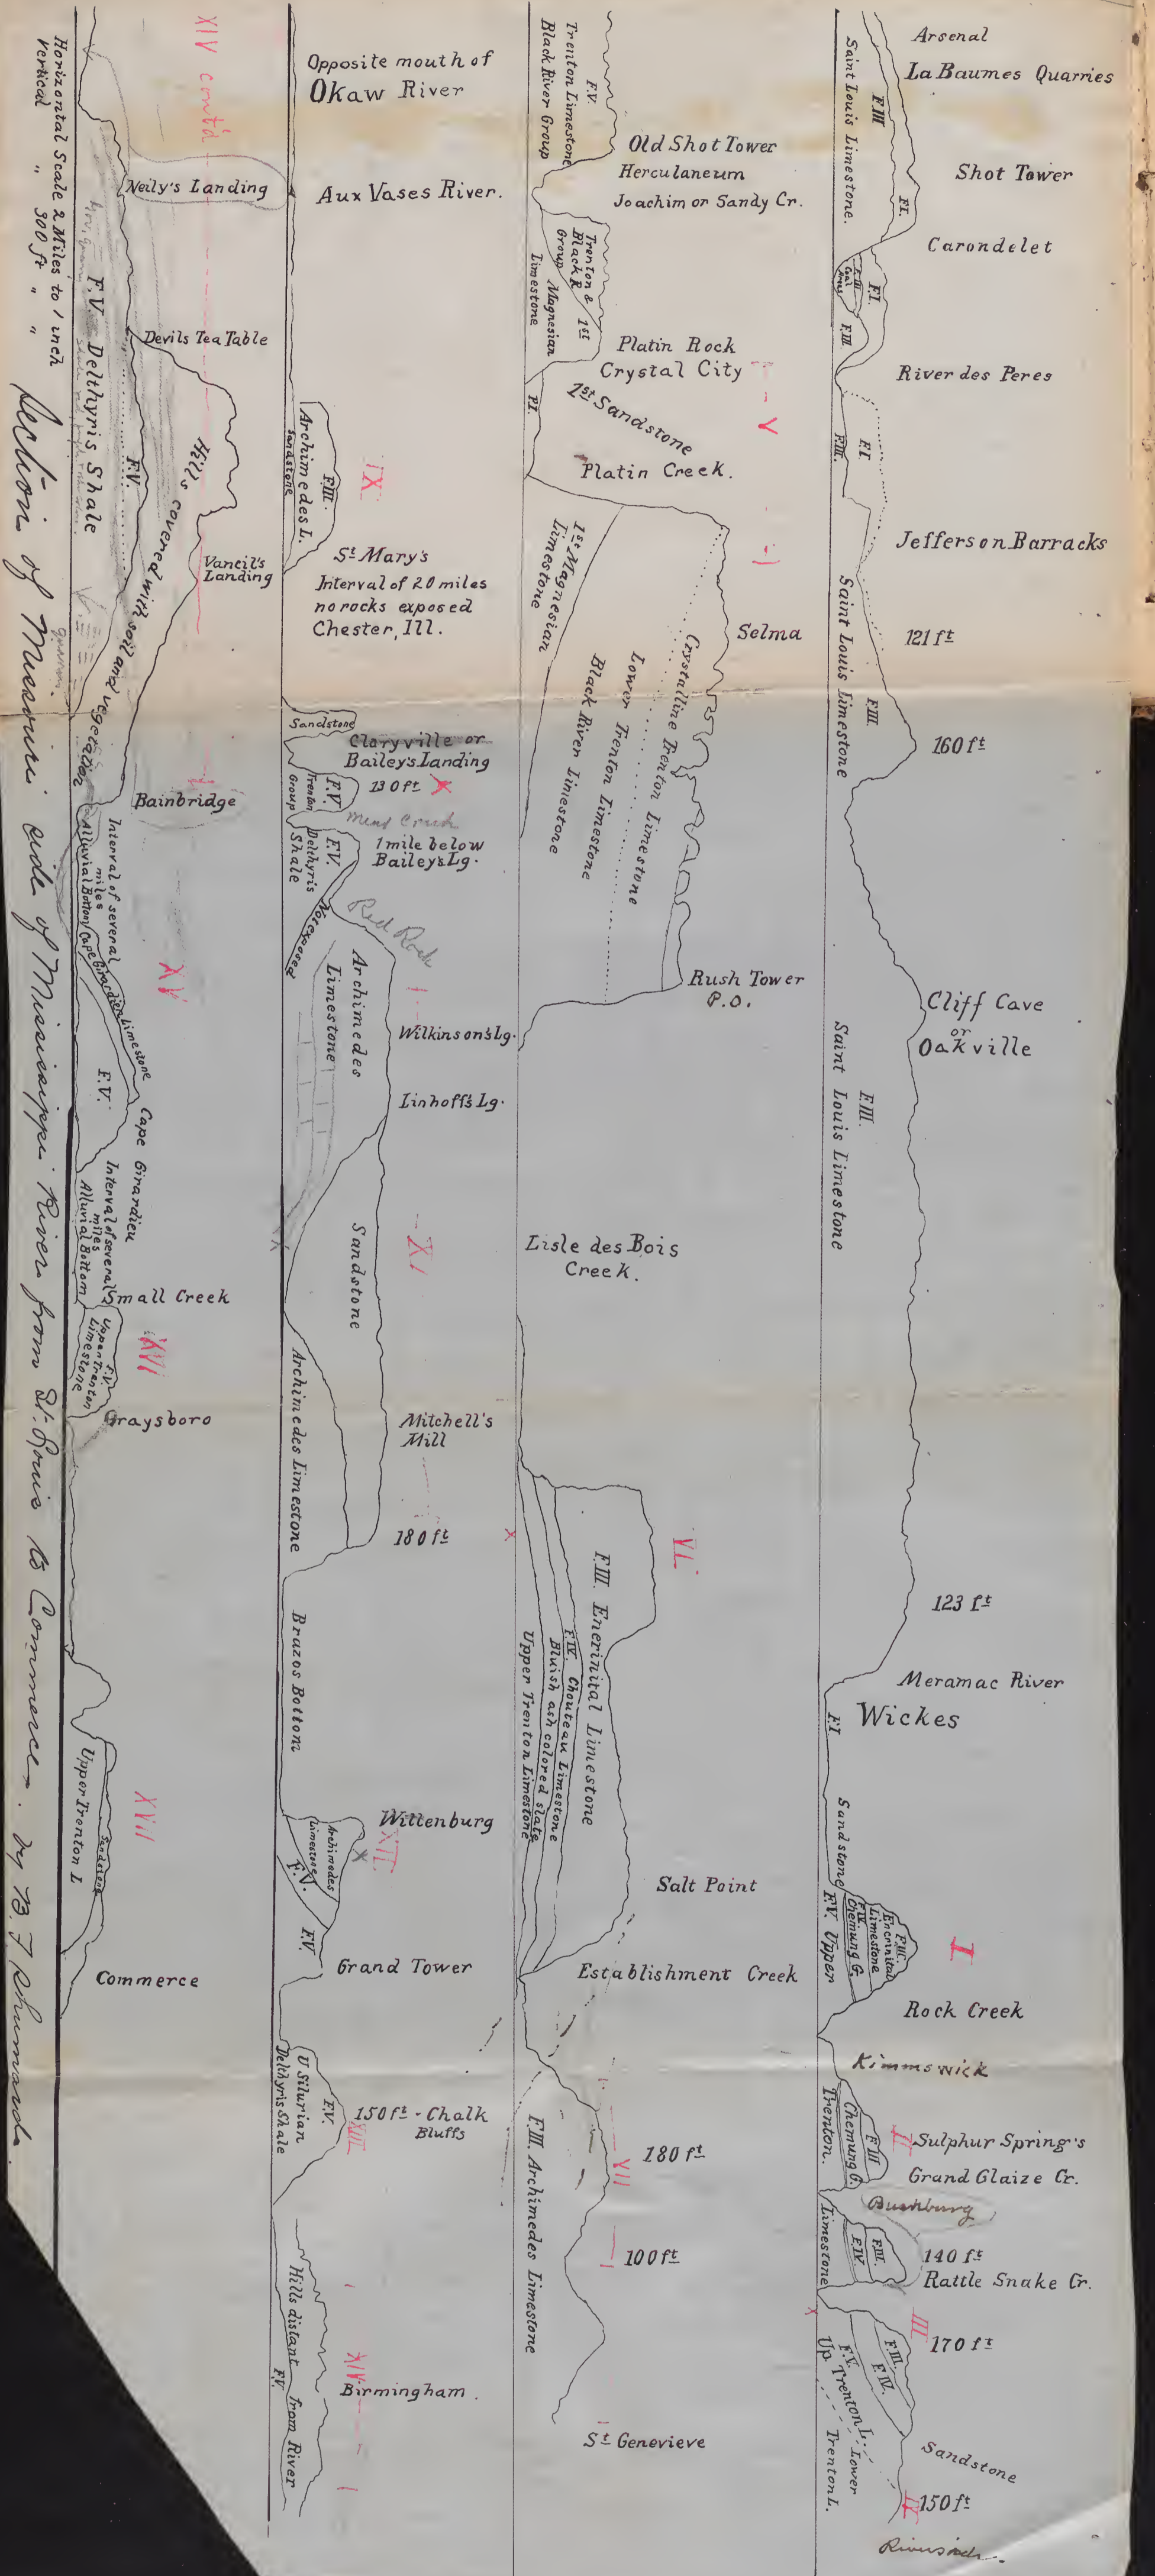 Arsenal
La Baumes Quarries
F.III
Saint Louis Limestone.
Shot Tower
F.I.
Carondelet
F.I.
F.III
Coal
F.III.
River des Peres
F.I.
F.III.
Jefferson Barracks
121 ft
Saint Louis Limestone
F.III.
160 ft
Cliff Cave
or
Oakville
F.III.
Saint Louis Limestone
123 ft
Meramac River
F.I
Wickes
Sandstone
F.III.
Encrinital
Limestone
F.IV.
Chemung G.
F.V. Upper
I
Rock Creek
Kimmswick
Trenton.
Chemung G.
F.III
II
Sulphur Spring's
Grand Glaize Cr.
Bushburg
Limestone
F.III.
F.IV.
140 ft
Rattle Snake Cr.
III
170 ft
F.III.
F.IV.
F.V.
Up. Trenton L.
Lower
Trenton L.
Sandstone
IV
150 ft
Riverside.
F.V.
Trenton Limestone
Black River Group
Old Shot Tower
Herculaneum
Joachim or Sandy Cr.
Trenton &
Black R.
Group
1st
Magnesian
Limestone
Platin Rock
Crystal City
F.I.
1st Sandstone
V
Platin Creek.
1st Magnesian
Limestone
Selma
Crystalline Trenton Limestone
Lower Trenton Limestone
Black River Limestone
Rush Tower
P.O.
Lisle des Bois
Creek.
VI.
F.III. Encrinital Limestone
F.IV. Chouteau Limestone
Bluish ash colored slate
Upper Trenton Limestone
Salt Point
Establishment Creek
F.III. Archimedes Limestone
180 ft
VII
100 ft
St Genevieve
Opposite mouth of
Okaw River
Aux Vases River.
F.III.
Archimedes L.
Sandstone
IX
St Mary's
Interval of 20 miles
no rocks exposed
Chester, Ill.
Sandstone
Claryville or
Bailey's Landing
F.V
Trenton
Group
130 ft
X
1 mile below
Bailey's Lg.
F.V.
Delthyris
Shale
Not exposed
Red Rock
Archimedes
Limestone
Wilkinson's Lg.
Linhoff's Lg.
Sandstone
XI
Archimedes Limestone
Mitchell's
Mill
180 ft
Brazos Bottom
Wittenburg
XII.
Archimedes
Limestone
F.V.
F.V.
Grand Tower
U Silurian
Delthyris Shale
F.V.
150 ft - Chalk
Bluffs
XIII
Hills distant from River
F.V.
XIV
Birmingham.
XIV cont'd
Neily's Landing
F.V. Delthyris Shale
Devils Tea Table
F.V.
Hills covered with soil and vegetation
Vancil's
Landing
Bainbridge
Interval of several
miles
Alluvial Bottom
Cape Girardieu Limestone
XV
F.V.
Cape Girardieu
Interval of several
miles
Alluvial Bottom
Small Creek
F.V.
Upper Trenton
Limestone
XVI
Graysboro
Upper Trenton L
Sandstone
XVII
Commerce
Horizontal Scale 2 Miles to 1 inch
Vertical " 300 ft " "
Section of Missouri side of Mississippi River from St. Louis to Commerce. by B. F. Shumard.